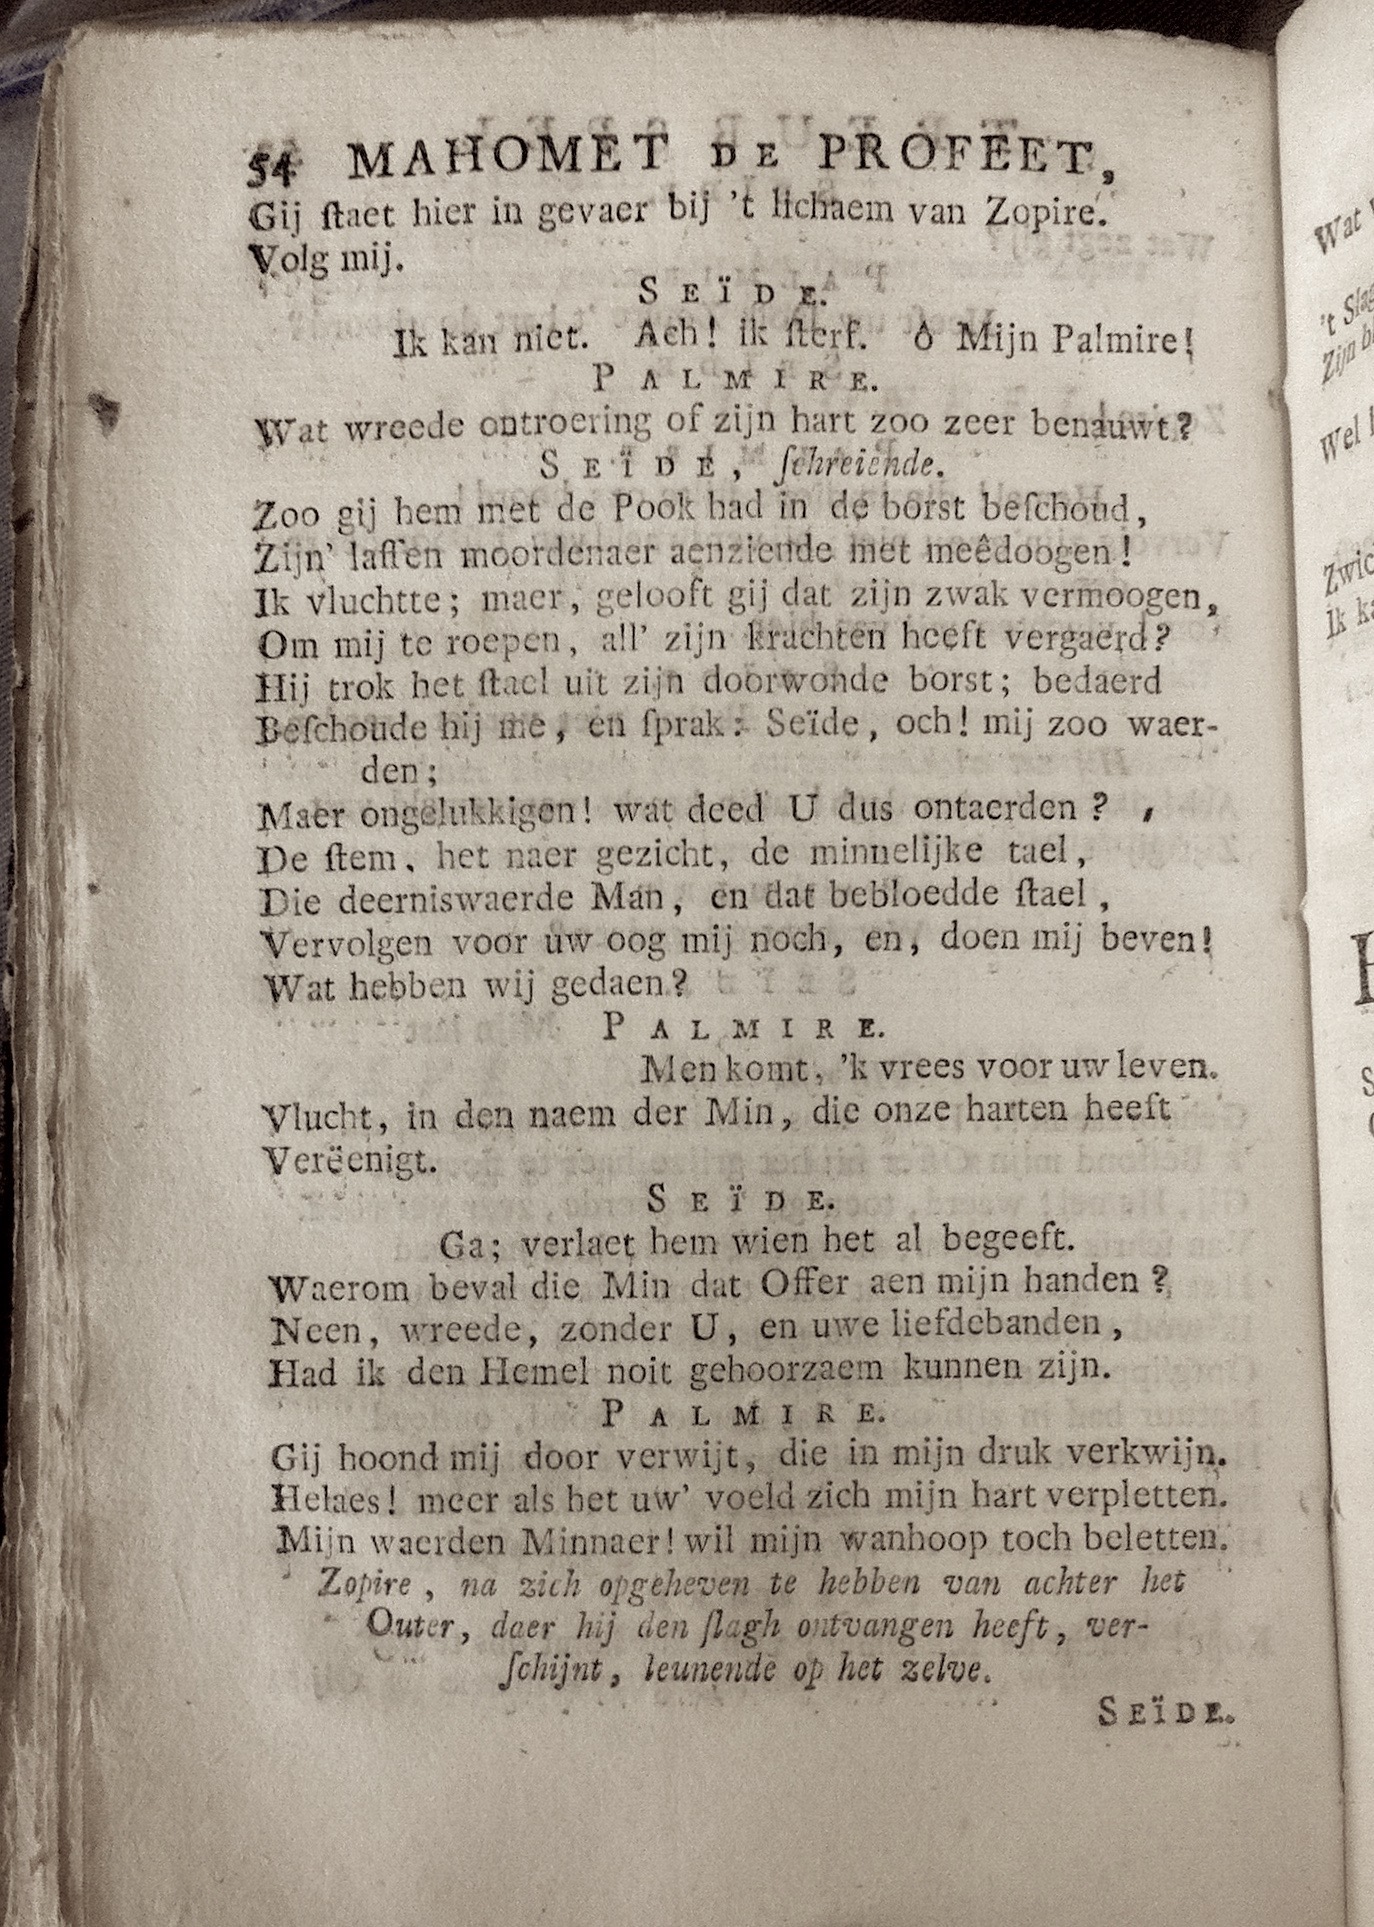 54 MAHOMET DE PROFEET,
Gij ſtaet hier in gevaer bij 't lichaem van Zopire.
Volg mij.
SEÏDE.
Ik kan niet. Ach! ik ſterf. ô Mijn Palmire!
PALMIRE.
Wat wreede ontroering of zijn hart zoo zeer benauwt?
SEÏDE, ſchreiende.
Zoo gij hem met de Pook had in de borst beſchoud,
Zijn' laſſen moordenaer aenziende met meêdoogen!
Ik vluchtte; maer, gelooft gij dat zijn zwak vermoogen,
Om mij te roepen, all' zijn krachten heeft vergaerd?
Hij trok het ſtael uit zijn doorwonde borst; bedaerd
Beſchoude hij me, en ſprak: Seïde, och! mij zoo waer-
den;
Maer ongelukkigen! wat deed U dus ontaerden?
De ſtem, het naer gezicht, de minnelijke tael,
Die deerniswaerde Man, en dat bebloedde ſtael,
Vervolgen voor uw oog mij noch, en, doen mij beven!
Wat hebben wij gedaen?
PALMIRE.
Men komt, 'k vrees voor uw leven.
Vlucht, in den naem der Min, die onze harten heeft
Verëenigt.
SEÏDE.
Ga; verlaet hem wien het al begeeft.
Waerom beval die Min dat Offer aen mijn handen?
Neen, wreede, zonder U, en uwe liefdebanden,
Had ik den Hemel noit gehoorzaem kunnen zijn.
PALMIRE.
Gij hoond mij door verwijt, die in mijn druk verkwijn.
Helaes! meer als het uw' voeld zich mijn hart verpletten.
Mijn waerden Minnaer! wil mijn wanhoop toch beletten.
Zopire, na zich opgeheven te hebben van achter het
Outer, daer hij den ſlagh ontvangen heeft, ver-
ſchijnt, leunende op het zelve.
SEÏDE.
Wat
't
Zijn
Wel
Ik